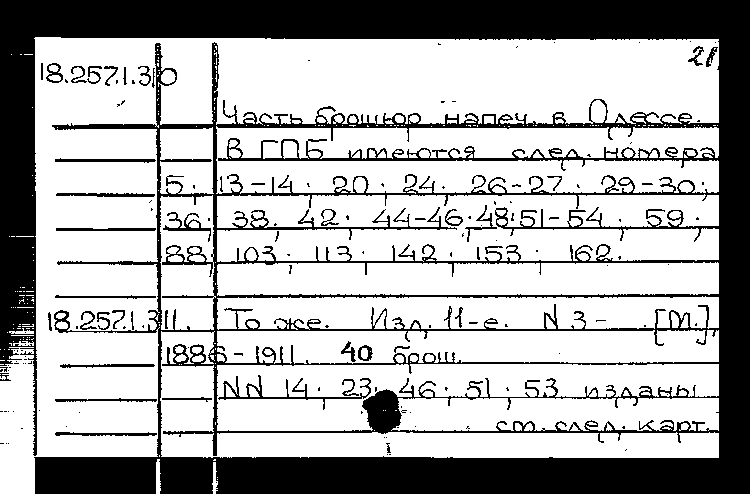 21
18.257.1.310
Часть брошюр напеч. в Одессе.
В ГПБ имеются след. номера
5; 13-14; 20; 24; 26-27; 29-30;
36; 38; 42; 44-46; 48; 51-54; 59;
88; 103; 113; 142; 153; 162.
18.257.1.311. То же. Изд. 11-е. N 3 - [М.],
1886-1911. 40 брош.
NN 14; 23; 46; 51; 53 изданы
см. след. карт.